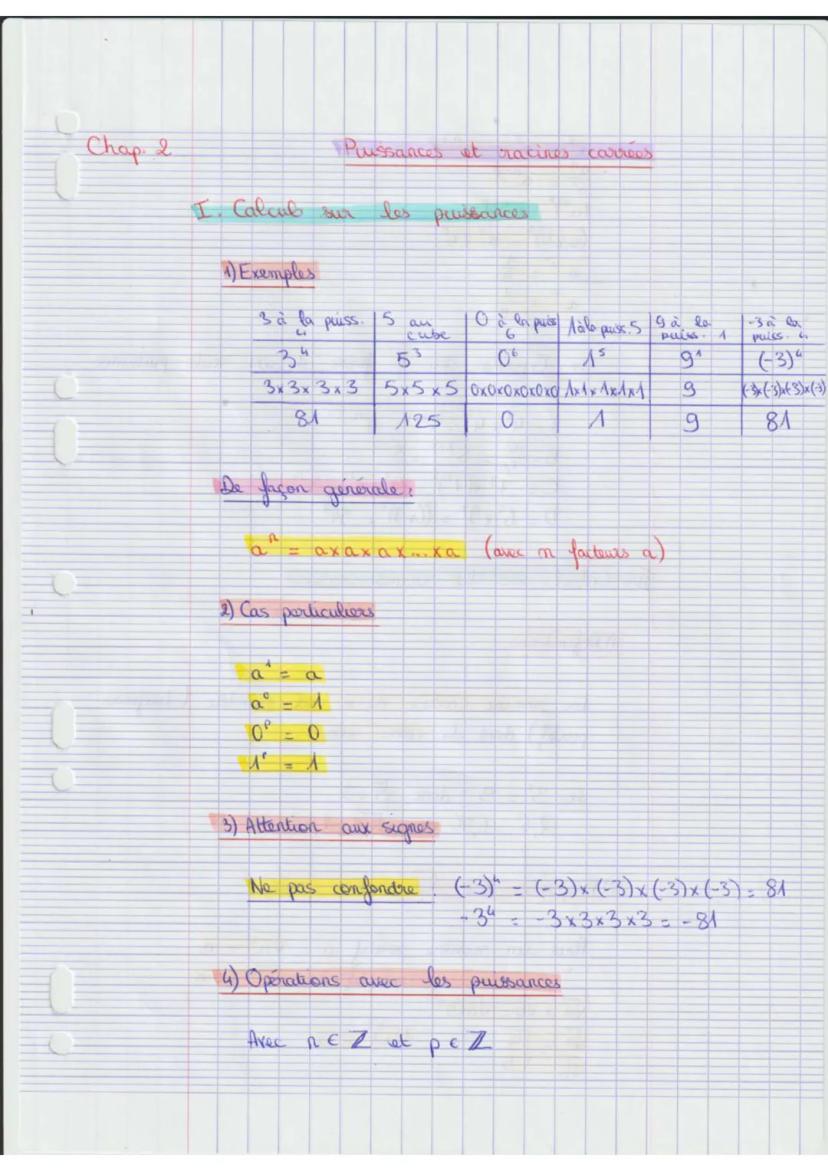 Chap. 2 Puissances et racines carrées
I. Calculs sur les puissances
1) Exemples
3 à la puiss. 4 | 5 au cube | 0 à la puiss 6 | 1 à la puiss. 5 | 9 à la puiss. 1 | -3 à la puiss. 4
3⁴ | 5³ | 0⁶ | 1⁵ | 9¹ | (-3)⁴
3×3×3×3 | 5×5×5 | 0×0×0×0×0×0 | 1×1×1×1×1 | 9 | (-3)×(-3)×(-3)×(-3)
81 | 125 | 0 | 1 | 9 | 81
De façon générale :
aⁿ = a×a×a×...×a (avec n facteurs a)
2) Cas particuliers
a¹ = a
a⁰ = 1
0ᵖ = 0
1ᵖ = 1
3) Attention aux signes
Ne pas confondre : (-3)⁴ = (-3)×(-3)×(-3)×(-3) = 81
-3⁴ = -3×3×3×3 = -81
4) Opérations avec les puissances
Avec n ∈ ℤ et p ∈ ℤ